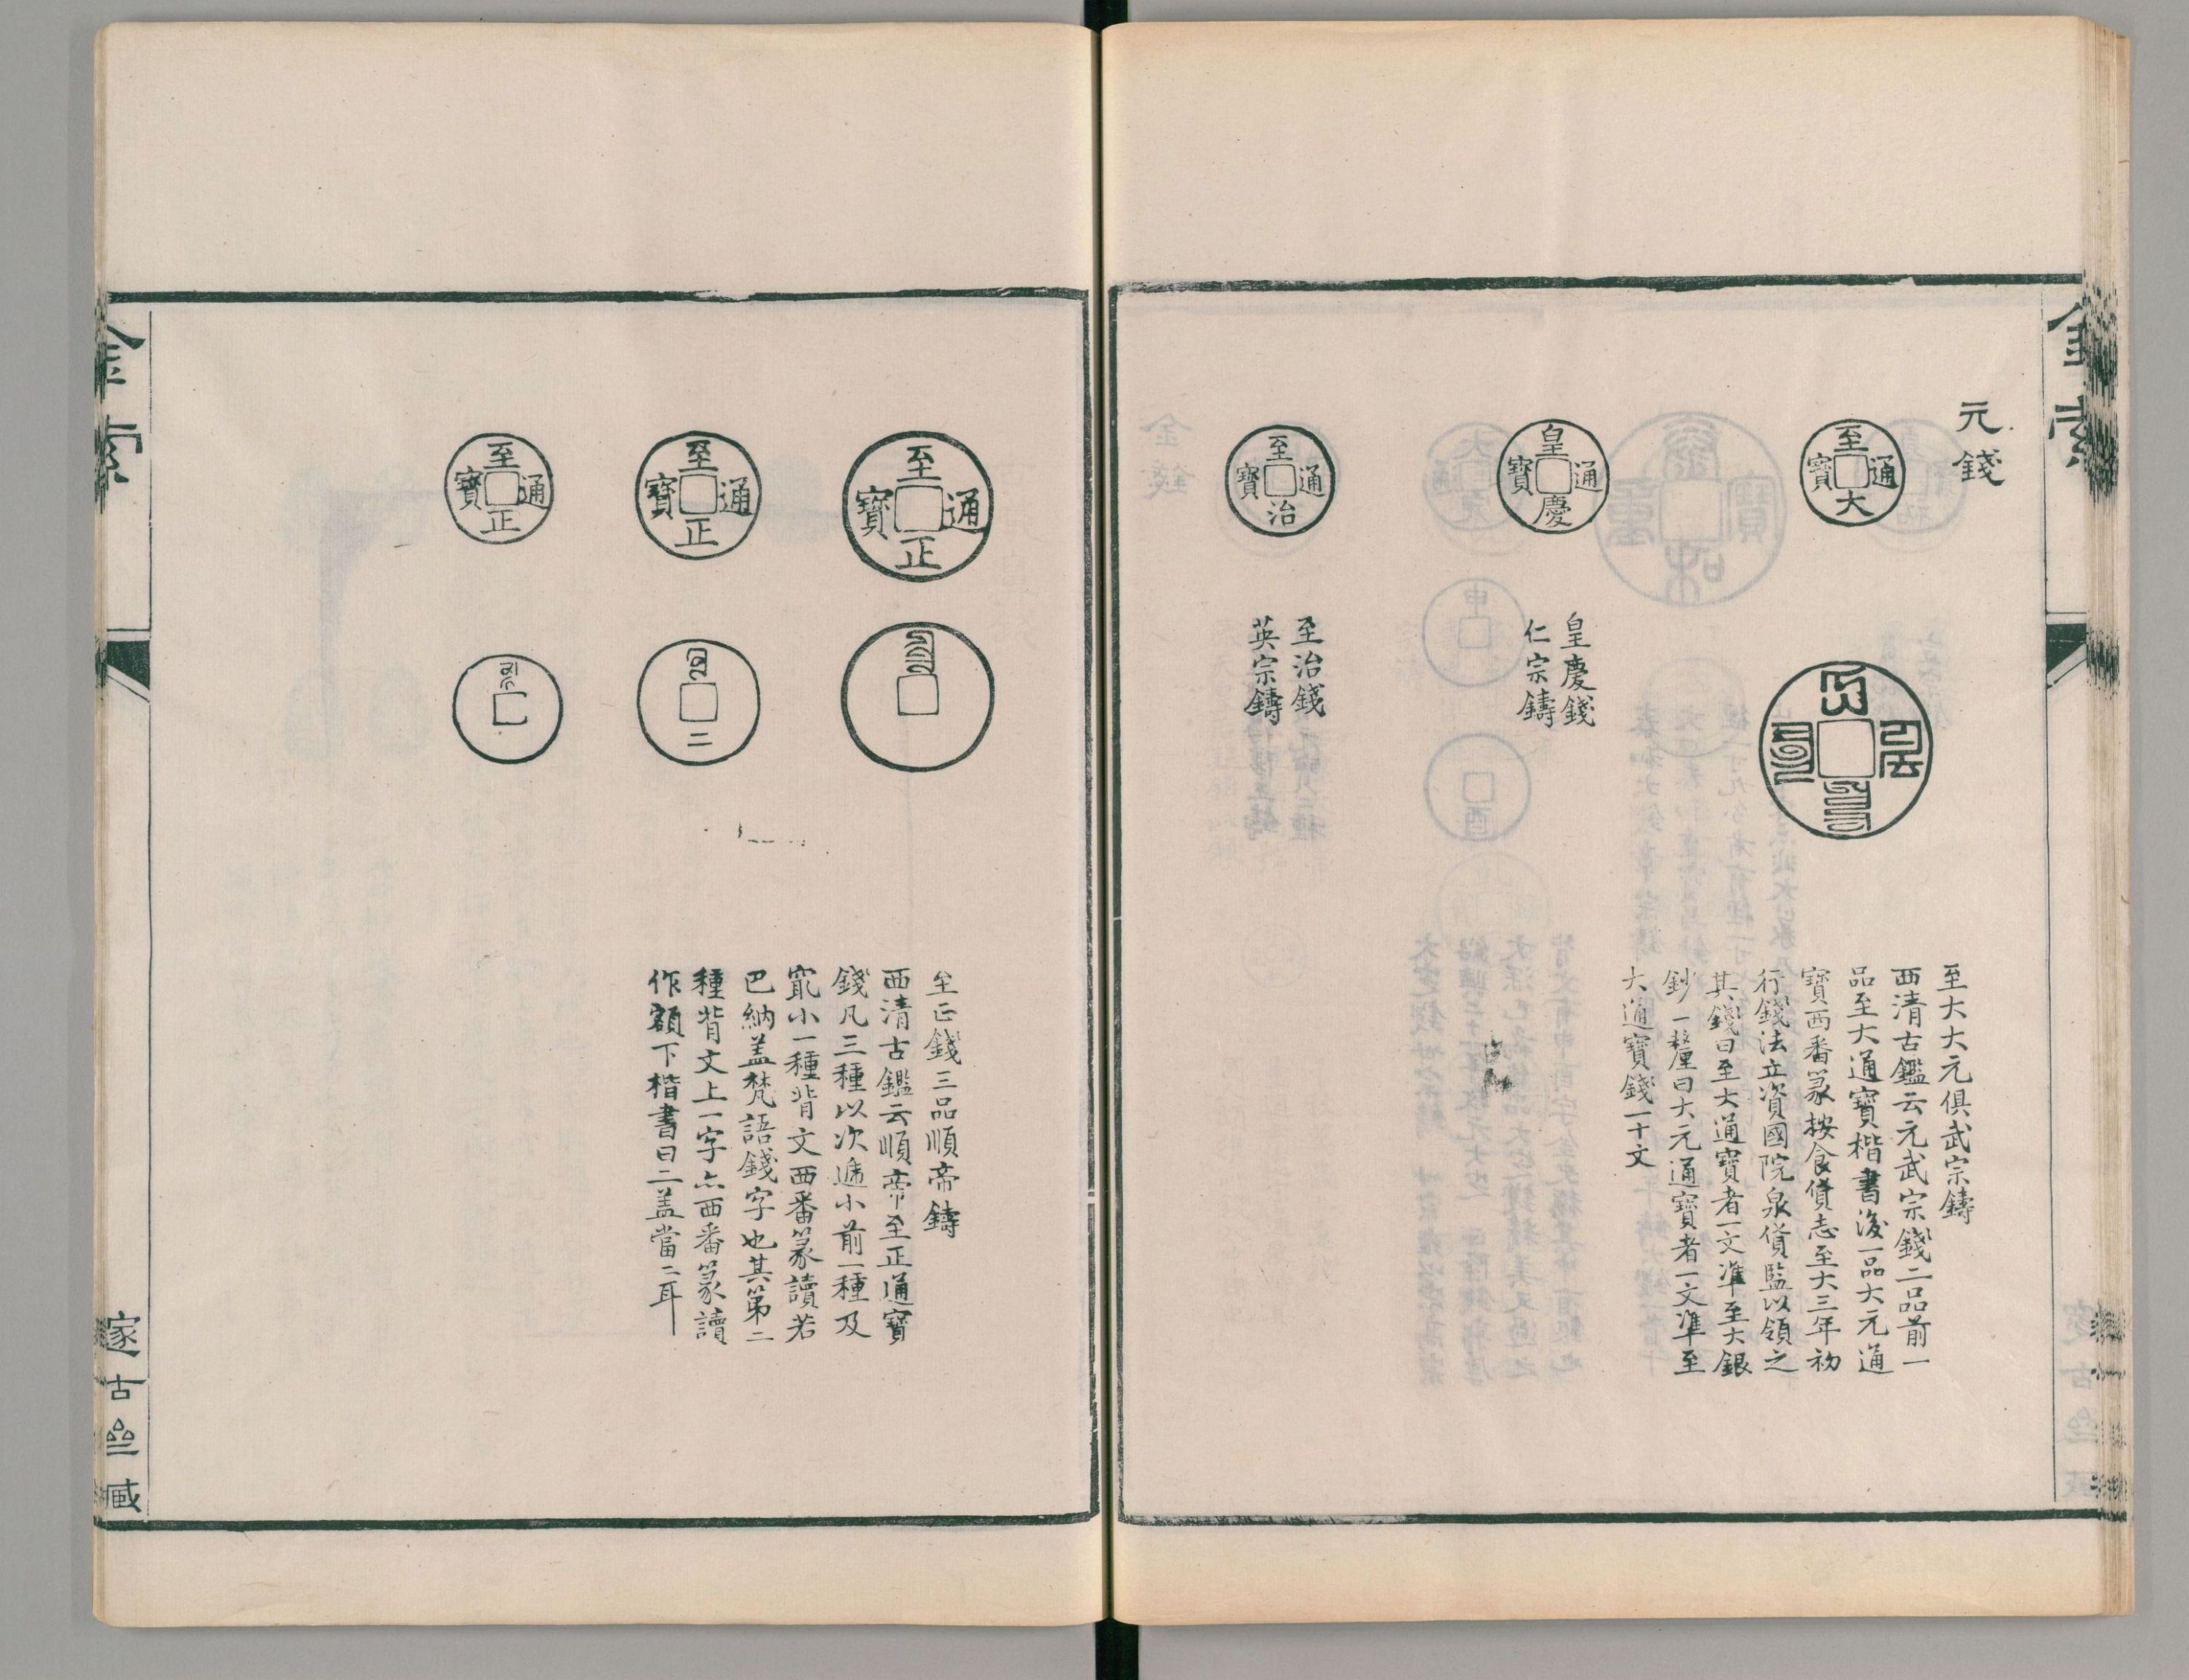 金索
元錢
至大通寶
皇慶通寶
至治通寶
皇慶錢
仁宗鑄
至治錢
英宗鑄
至大大元俱武宗鑄
西清古鑑云元武宗錢二品前一
品至大通寶楷書後一品大元通
寶西番篆按食貨志至大三年初
行錢法立資國院泉貨監以領之
其錢曰至大通寶者一文準至大銀
鈔一釐曰大元通寶者一文準至
大通寶錢一十文
至正通寶
至正通寶
至正通寶
二
至正錢三品順帝鑄
西清古鑑云順帝至正通寶
錢凡三種以次遞小前一種及
冣小一種背文西番篆讀若
巴納盖梵語錢字也其第二
種背文上一字亦西番篆讀
作額下楷書曰二盖當二耳
金索
邃古亝臧